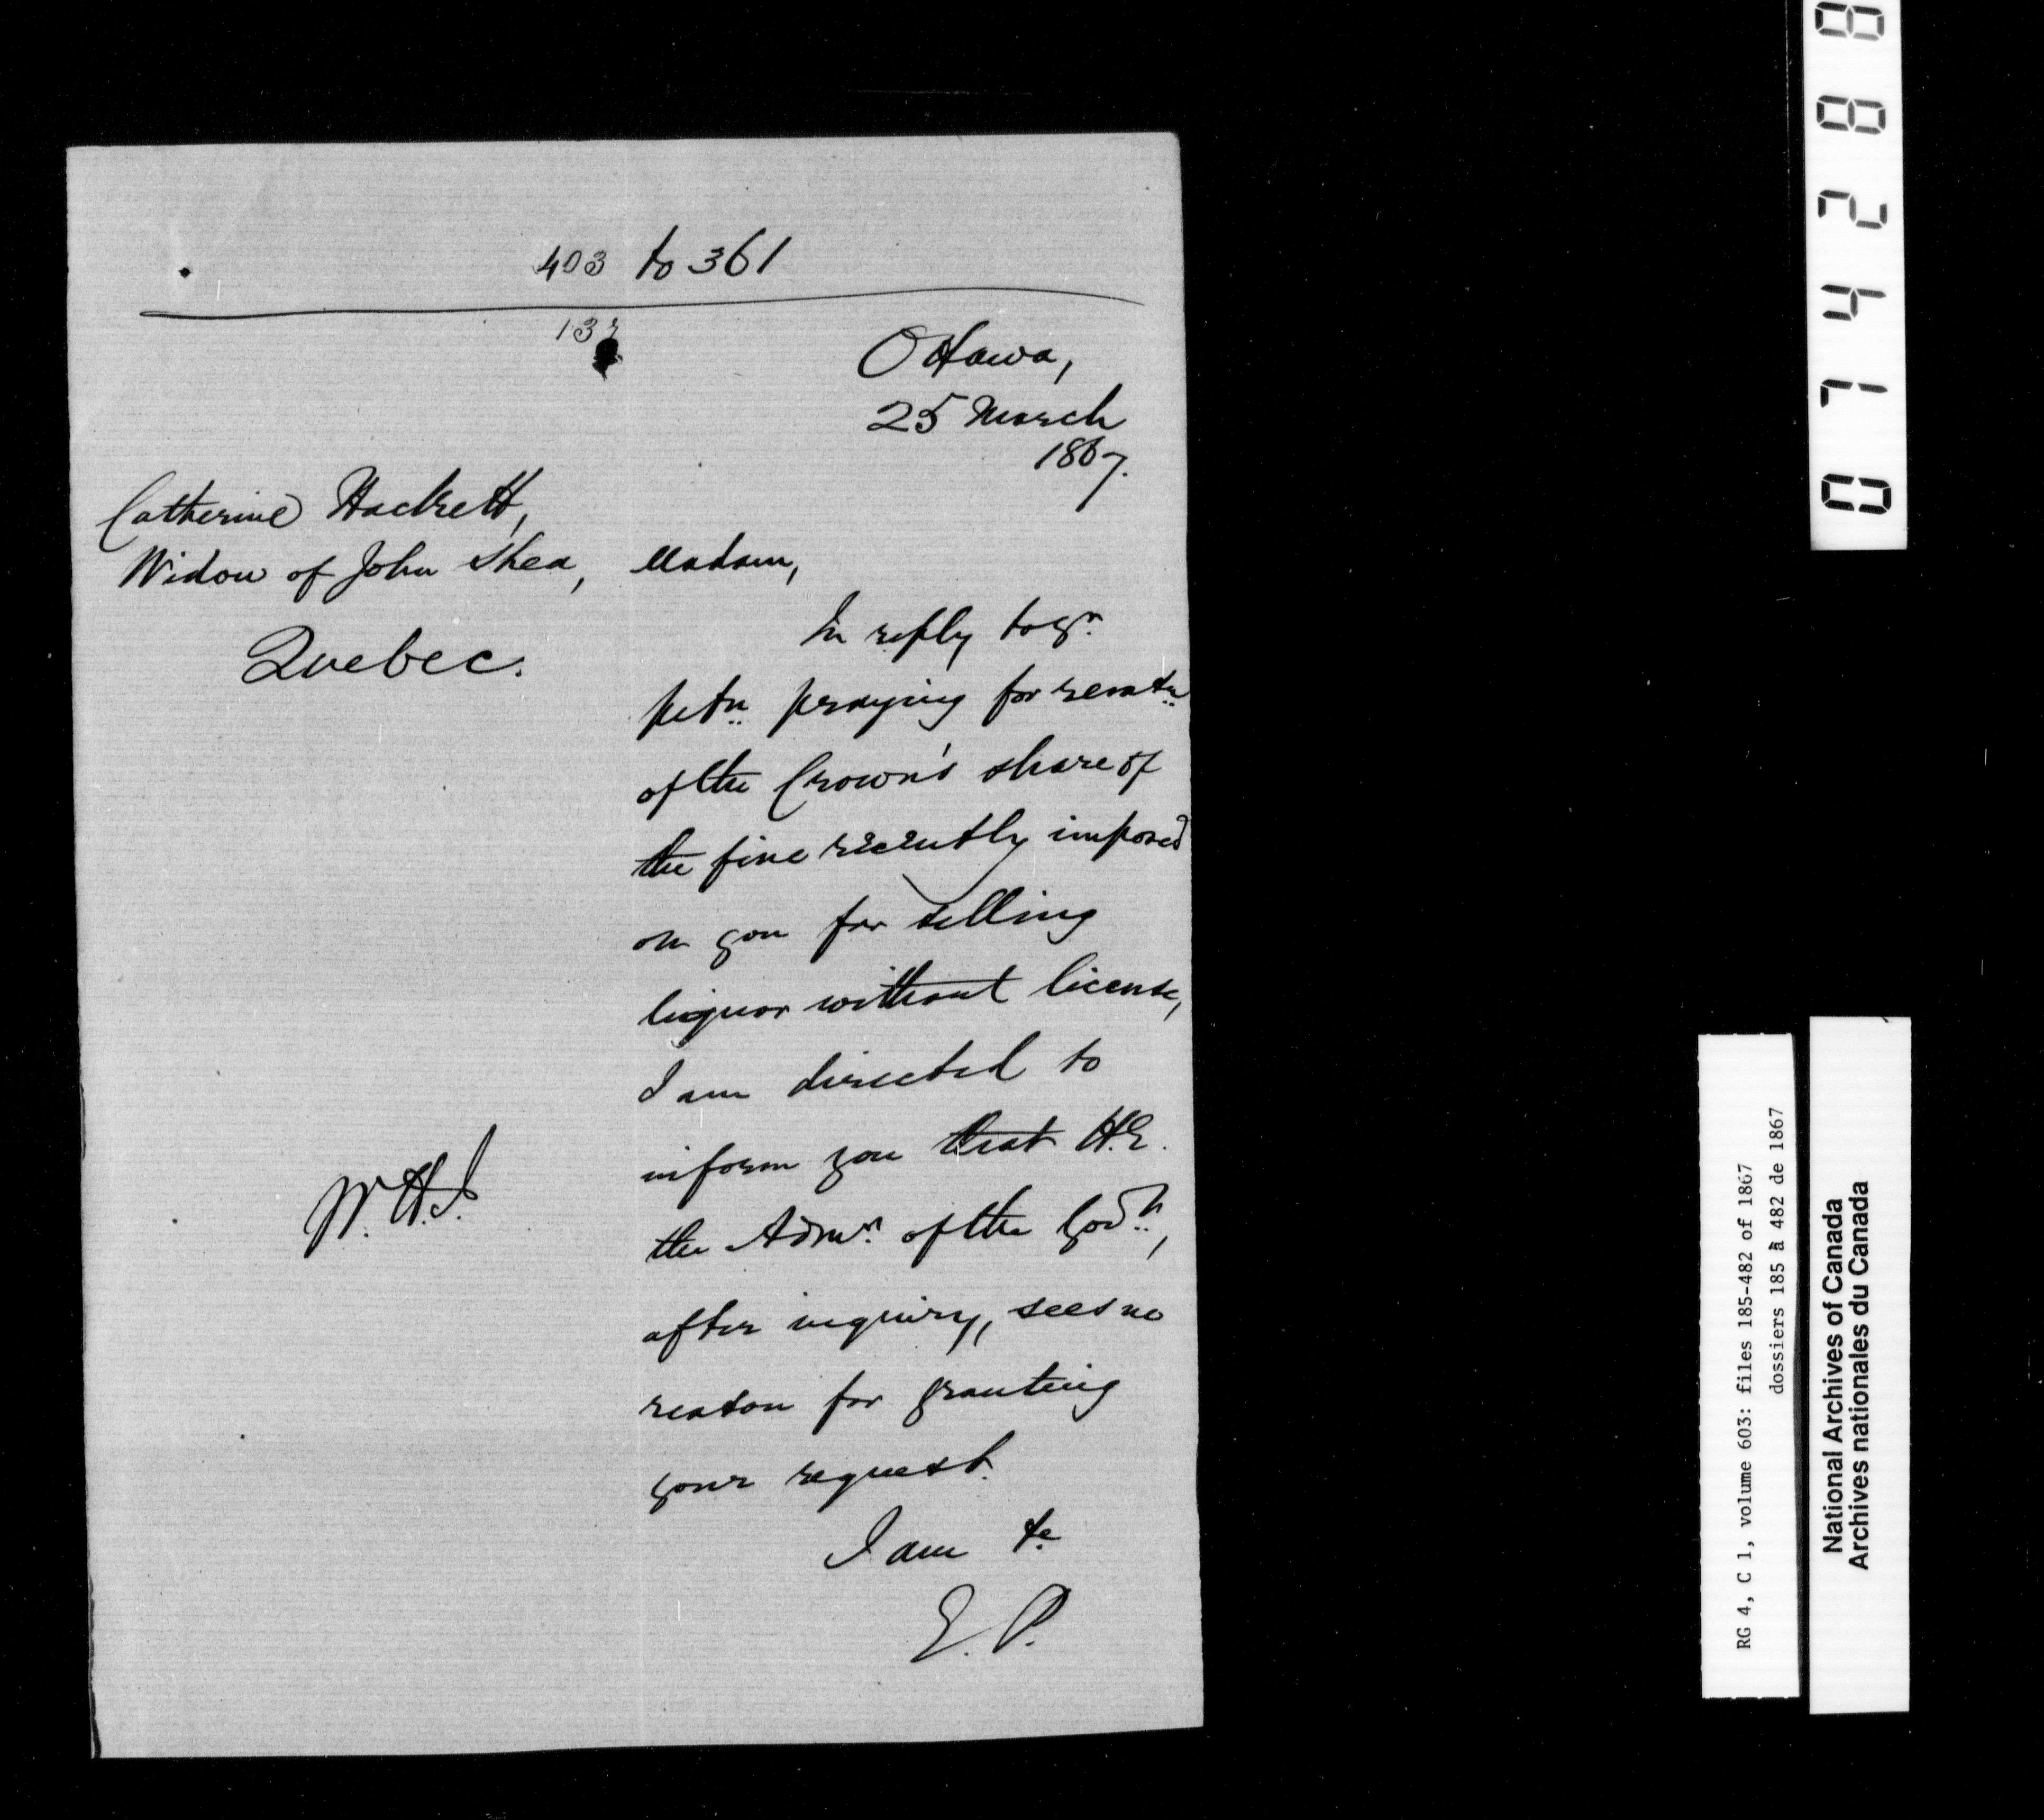 403 to 361
Ottawa,
25 March
1867.
Catherine Hackett,
Widow of John Shea,
Quebec.
Madam,
In reply to yr.
petn. praying for remtn.
of the Crown's share of
the fine recently imposed
on you for selling
liquor without license,
I am directed to
inform you that H.E.
the Admr. of the Govt.,
after inquiry, sees no
reason for granting
your request.
I am &c
E. P.
W. H. J.
0742 88
RG 4, C 1, volume 603: files 185-482 of 1867
dossiers 185 à 482 de 1867
National Archives of Canada
Archives nationales du Canada